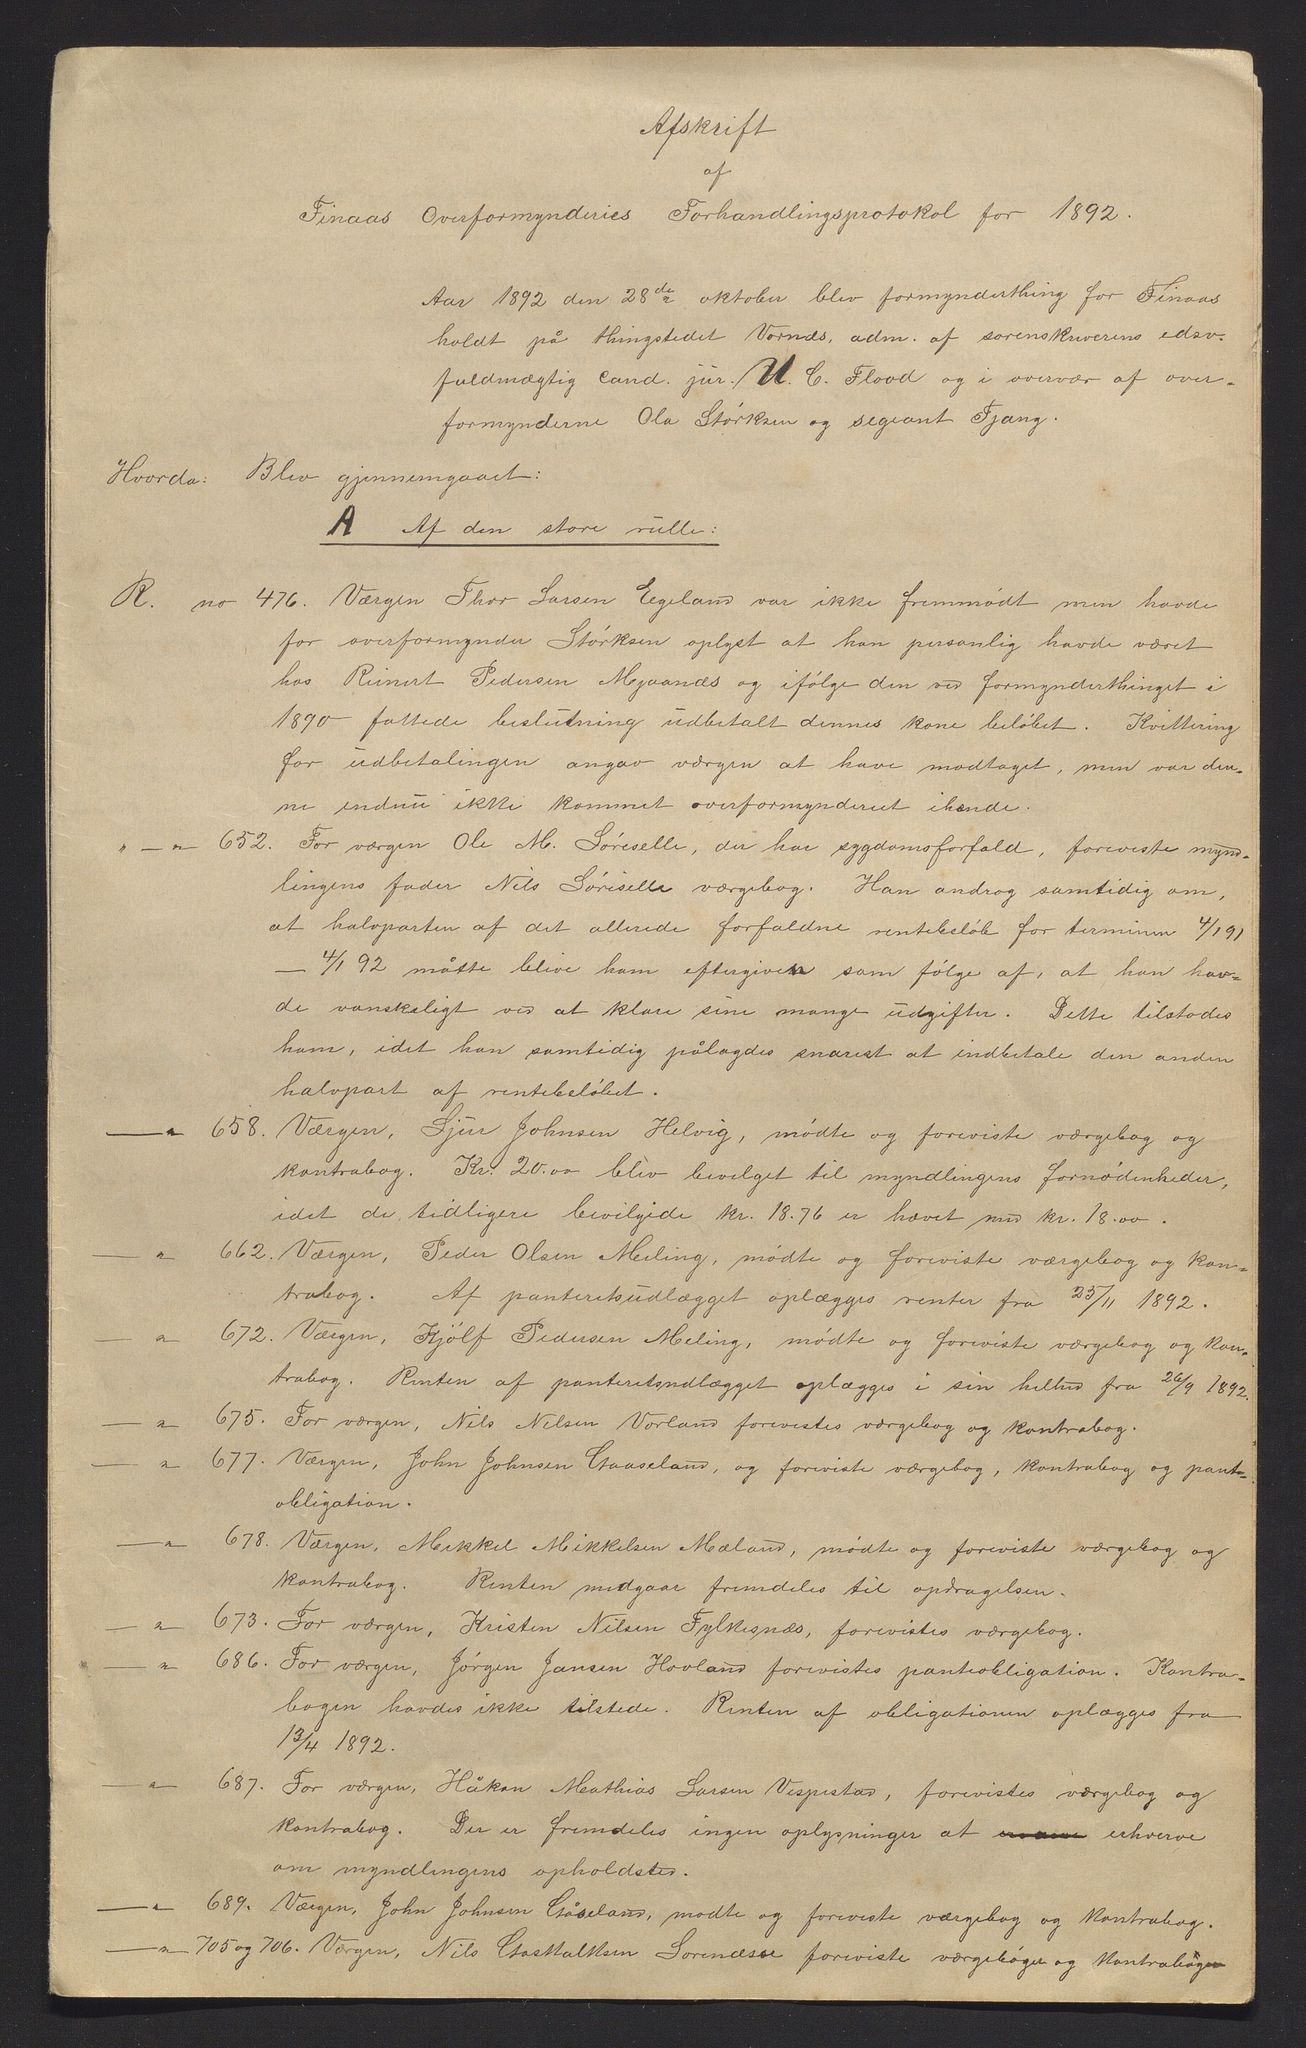 Afskrift
af
Finaas Overformynderies Forhandlingsprotokol for 1892.
Aar 1892 den 28de oktober blev formynderthing for Finaas
holdt på thingstedet Vornæs, adm. af sorenskriverens edsv.
fuldmægtig Cand. jur. U. C. Flood og i overvær af over-
formynderne Ola Störksen og segeant Tjang.
Hvorda: Blev gjennemgaaet:
A Af den store rulle:
R. no 476. Værgen Thor Larsen Egeland var ikke fremmødt men havde
for overformynder Störksen oplyst at han personlig havde været
hos Reinert Pedersen Mjaanæs og ifölge den ved formynderthinget i
1890 fattede beslutning udbetalt dennes kone belöbet. Kvittering
for udbetalingen angav værgen at have modtaget, men var den-
ne endnu ikke kommet overformynderiet ihænde.
" — " 652. For værgen Ole M. Söreselle, der har sygdomsforfald, foreviste mynd-
lingens fader Nils Söriselle værgebog. Han androg samtidig om,
at halvparten af det allerede forfaldne rentebeløb for terminen 4/1 91
— 4/1 92 måtte blive ham eftergiven som fölge af, at han hav-
de vanskeligt ved at klare sine mange udgifter. Dette tilstodes
ham, idet han samtidig pålagdes snarest at indbetale den anden
halvpart af rentebelöbet.
— " 658. Værgen, Sjur Johnsen Helvig, mödte og foreviste værgebog og
kontrabog. Kr. 20.00 blev bevilget til myndlingens fornödenheder,
idet de tidligere bevilgede kr. 18.76 er hævet med kr. 18.00.
— " 662. Værgen, Peder Olsen Meling, mödte og foreviste værgebog og kon-
trabog. Af panteretsudlægget oplægges renter fra 25/11 1892.
— " 672. Værgen, Kjölf Pedersen Meling, mödte og foreviste værgebog og kon-
trabog. Renten af panteretsudlægget oplægges i sin helhed fra 26/9 1892.
— " 675. For værgen, Nils Nilsen Vorland forevistes værgebog og kontrabog.
— " 677. Værgen, John Johnsen Gaaseland, og foreviste værgebog, kontrabog og pant-
obligation.
— " 678. Værgen, Mikkel Mikkelsen Mæland, mödte og foreviste værgebog og
kontrabog. Renten medgaar fremdeles til opdragelsen.
— " 673. For værgen, Kristen Nilsen Fylkesnæs, forevistes værgebog.
— " 686. For værgen, Jörgen Jansen Hovland forevistes panteobligation. Kontra-
bogen havdes ikke tilstede. Renten af obligationen oplægges fra
13/4 1892.
— " 687. For værgen, Håkon Mathias Larsen Vespestad, forevistes værgebog og
kontrabog. Der er fremdeles ingen oplysninger at erhverve
om myndlingens opholdsted.
— " 689. Værgen, John Johnsen Gåseland, mødte og foreviste værgebog og kontrabog.
— " 705 og 706. Værgen, Nils Gastsalksen Sorenæsse foreviste værgebøger og kontrabøger